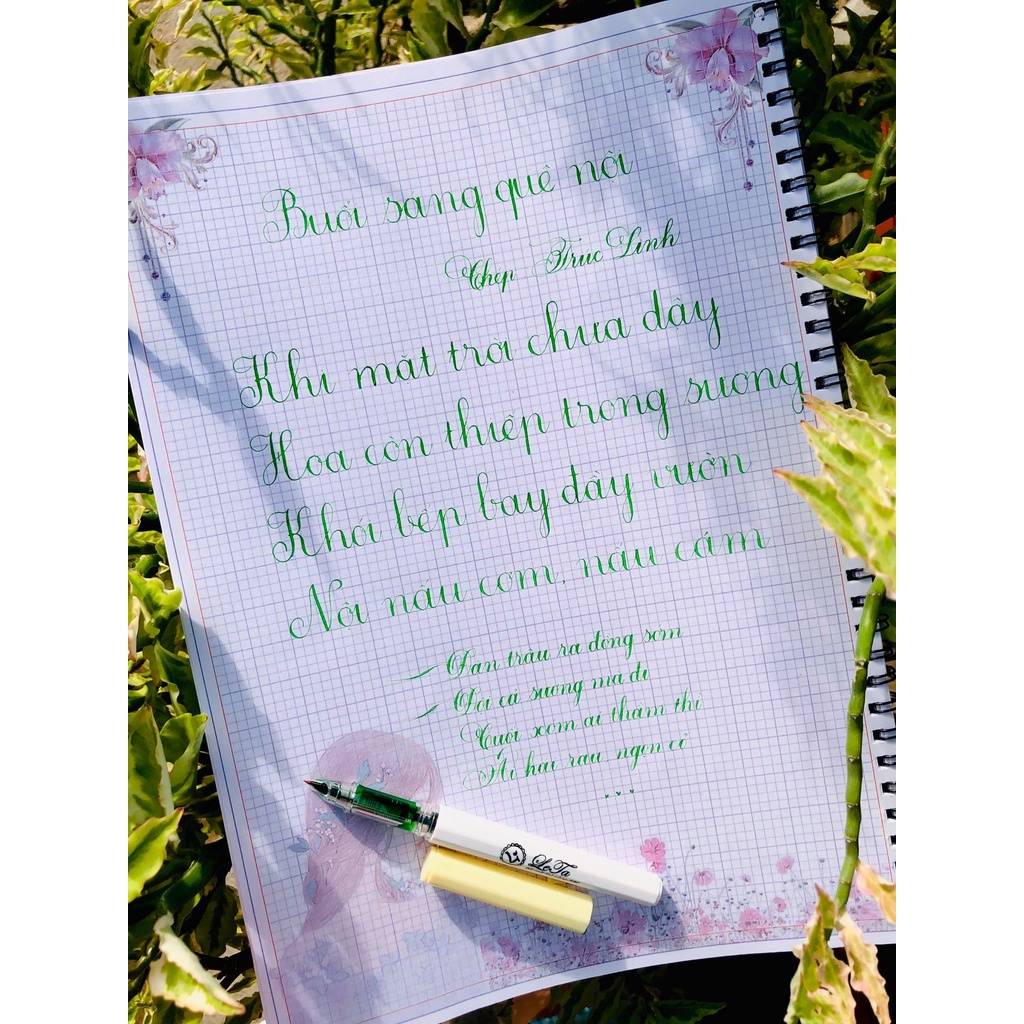 Buổi sáng quê nội
Chép Trúc Linh
Khi mặt trời chưa dậy
Hoa còn thiếp trong sương
Khói bếp bay đầy vườn
Nội nấu cơm, nấu cám
Đàn trâu ra đồng sớm
Đội cả sương mà đi
Cuối xóm ai thầm thì
Hái rau, ngọn
LeTa